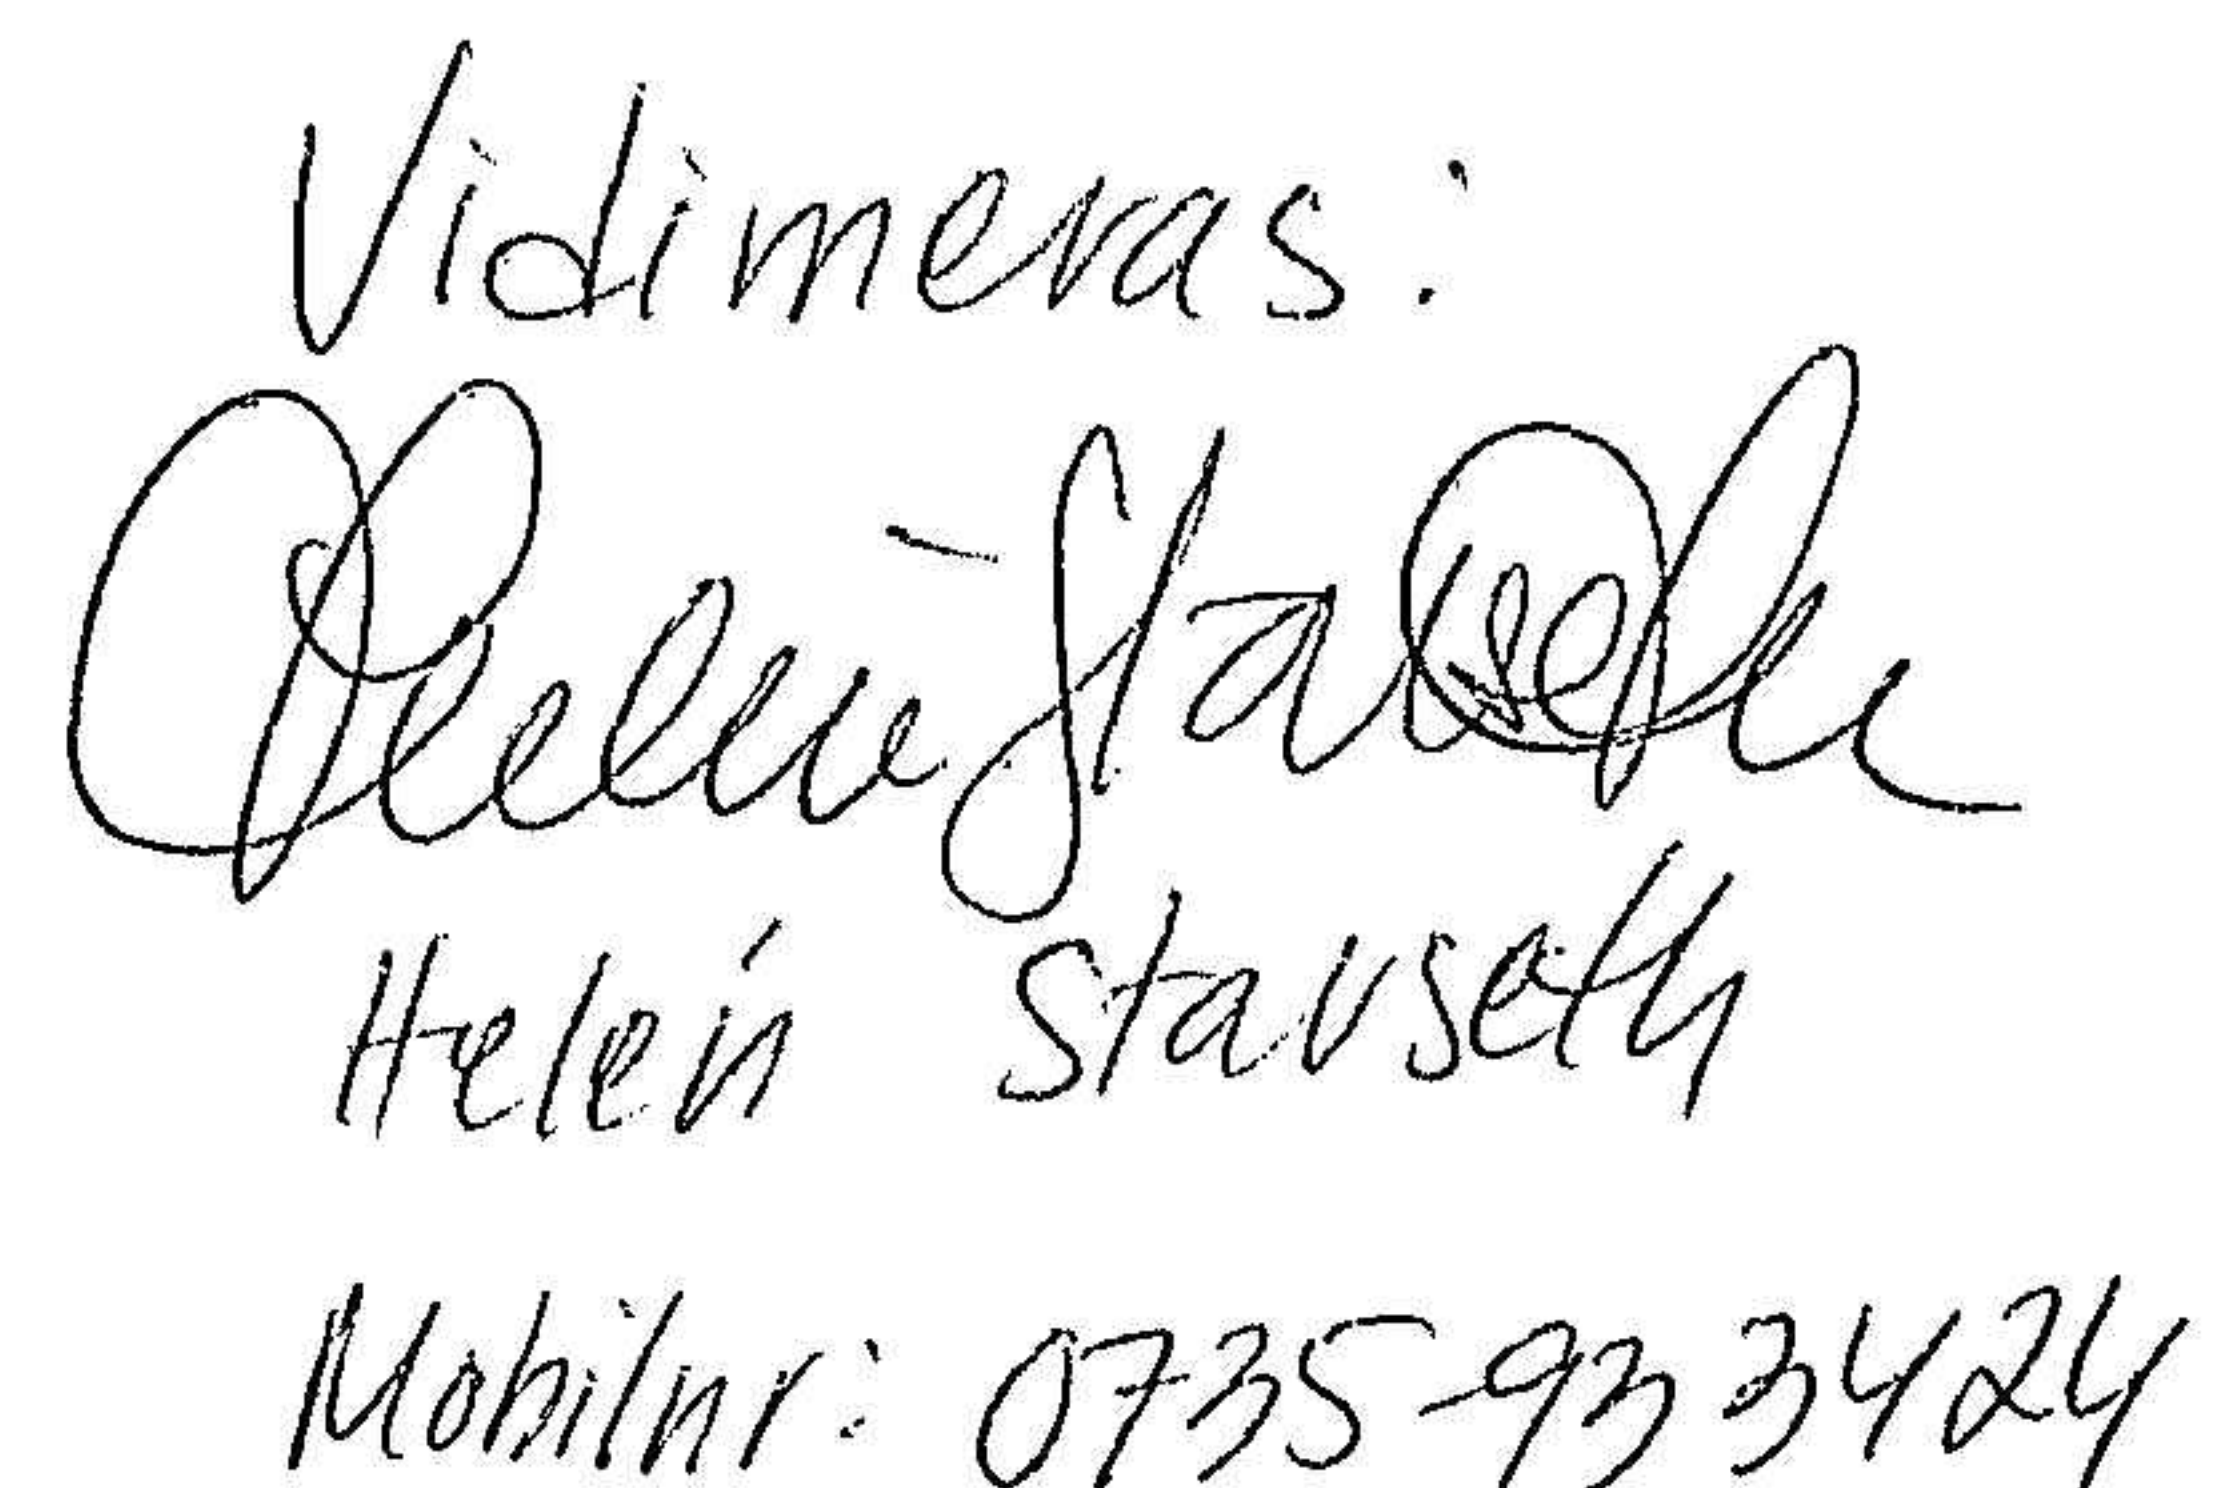 Vidimeras:
Helén Stavseth
Helén Stavseth
Mobilnr: 0735-93 34 24